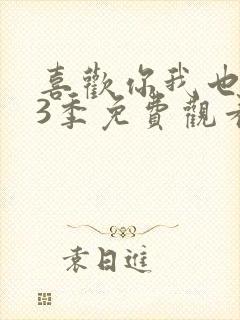 喜歡你我也
3季免費觀看
袁日進